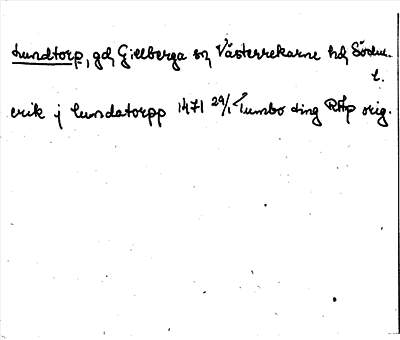 Lundtorp, gd, Gillberga sn, Västerrekarne hd, Söderm.
l.
erik j lundatorpp 1471 29/1 Tumbo ting RAp orig.